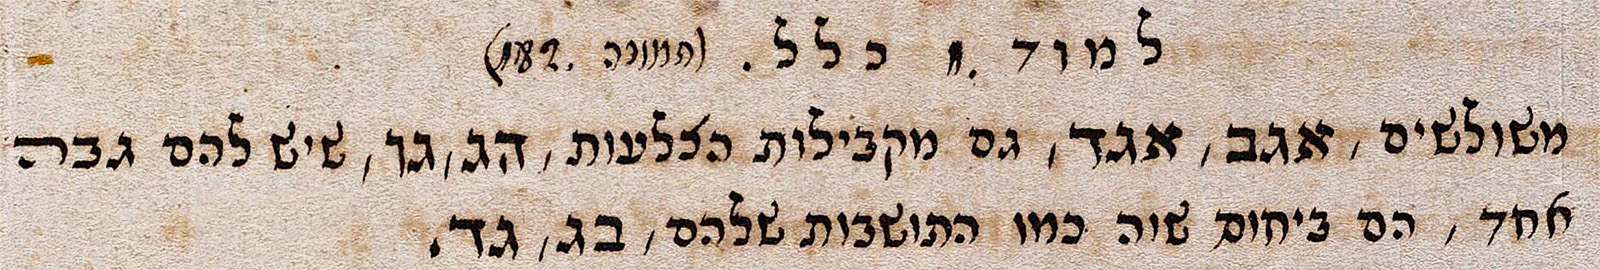 למוד .א כלל. (תמונה .קעו)
משולשים, אגב, אגד, גם מקבילות הצלעות, הג, גו, שיש להם גבה
אחד, הם ביחוס שוה כמו התושבות שלהם, בג, גד.